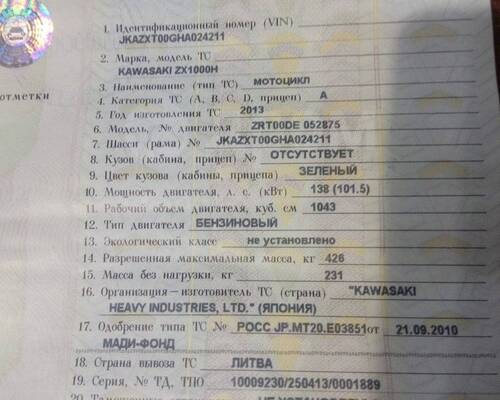 1. Идентификационный номер (VIN)
JKAZXT00GHA024211
2. Марка, модель ТС
KAWASAKI ZX1000H
3. Наименование (тип ТС) МОТОЦИКЛ
отметки
4. Категория ТС (А, В, С, D, прицеп) А
5. Год изготовления ТС 2013
6. Модель, № двигателя ZRT00DE 052875
7. Шасси (рама) № JKAZXT00GHA024211
8. Кузов (кабина, прицеп) № ОТСУТСТВУЕТ
9. Цвет кузова (кабины, прицепа) ЗЕЛЕНЫЙ
10. Мощность двигателя, л. с. (кВт) 138 (101.5)
11. Рабочий объем двигателя, куб. см 1043
12. Тип двигателя БЕНЗИНОВЫЙ
13. Экологический класс не установлено
14. Разрешенная максимальная масса, кг 426
15. Масса без нагрузки, кг 231
16. Организация—изготовитель ТС (страна) "KAWASAKI
HEAVY INDUSTRIES, LTD." (ЯПОНИЯ)
17. Одобрение типа ТС № РОСС JP.MT20.E03851от 21.09.2010
МАДИ-ФОНД
18. Страна вывоза ТС ЛИТВА
19. Серия, № ТД, ТПО 10009230/250413/0001889